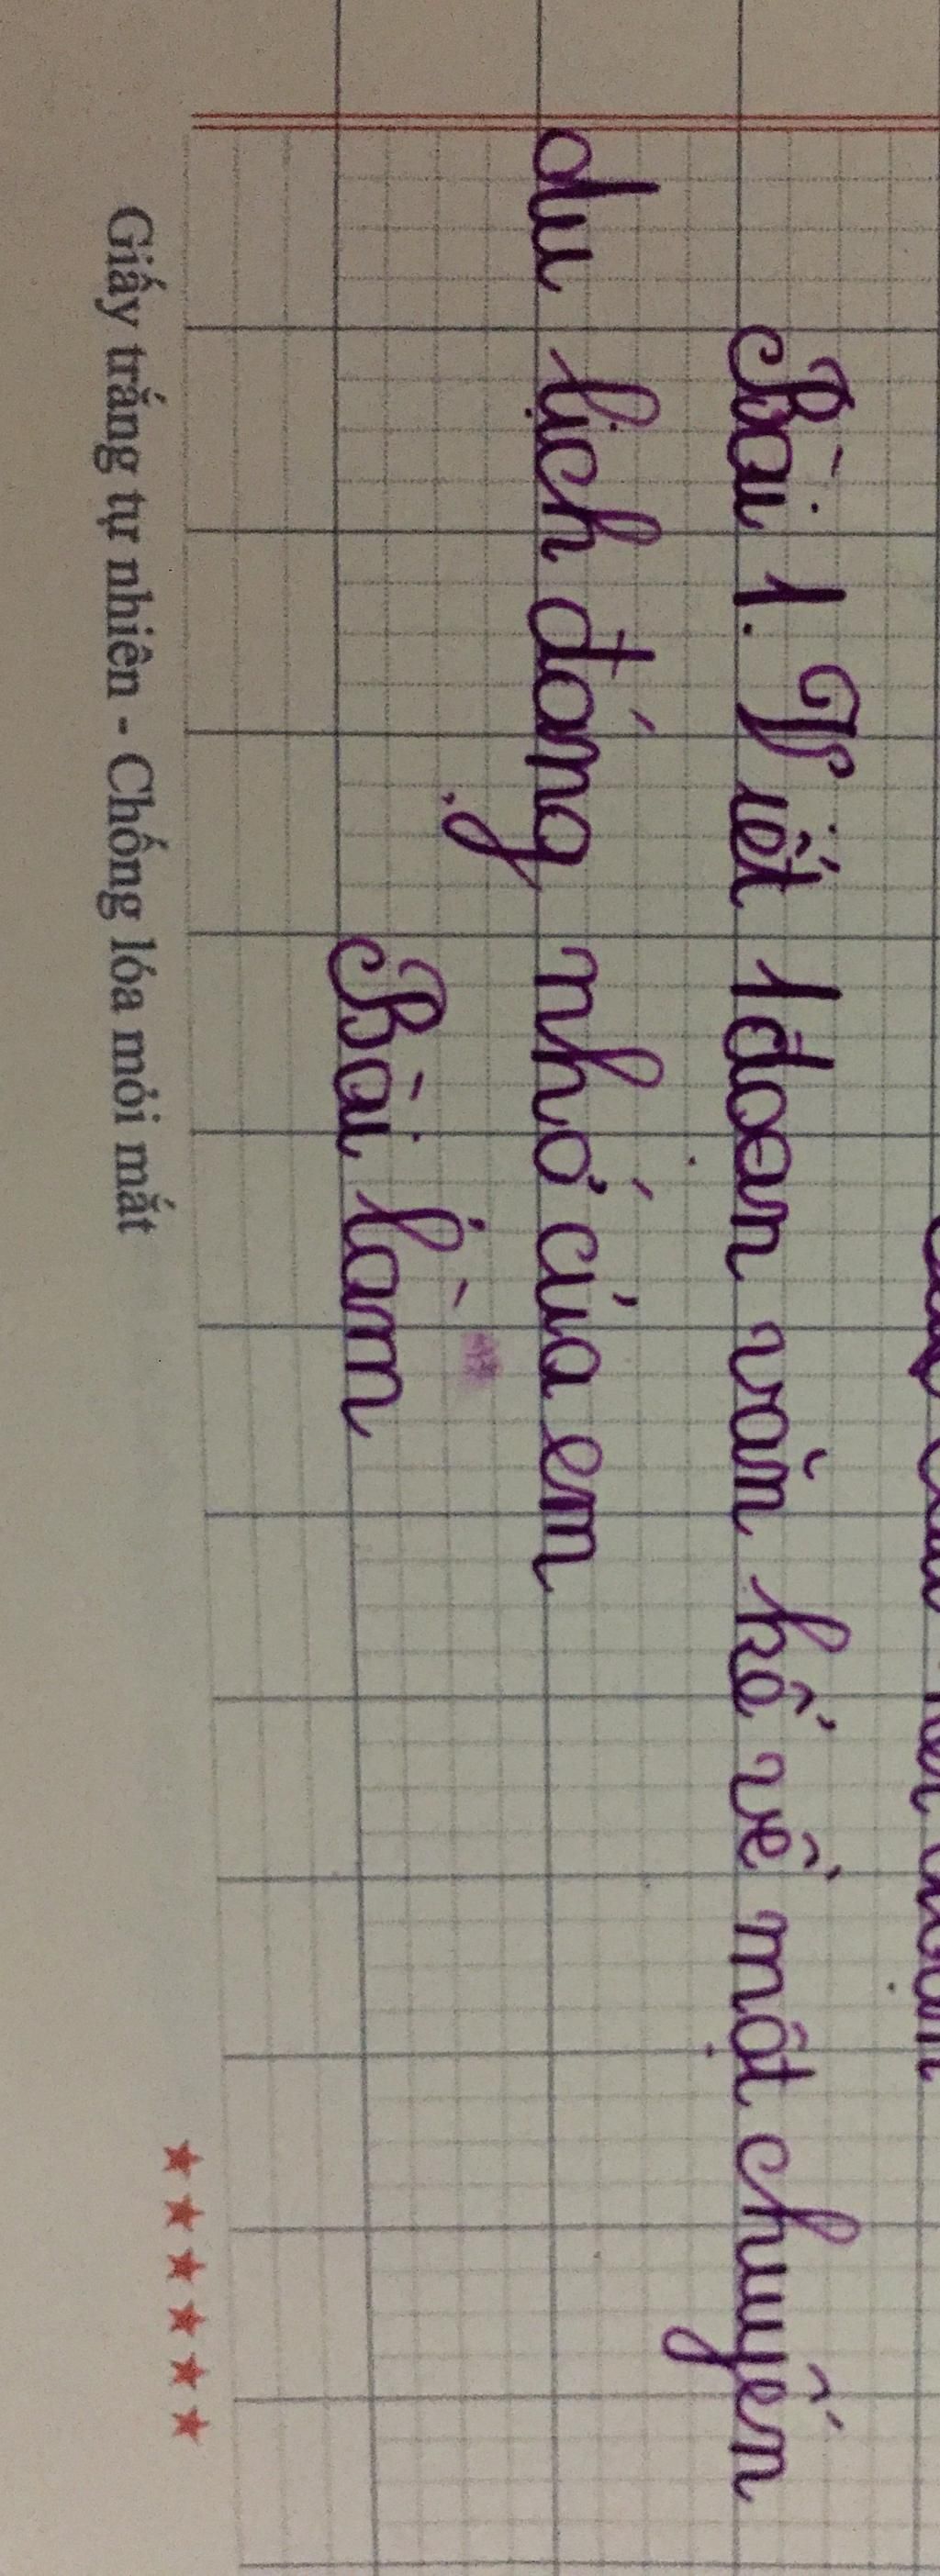 Bài 1. Viết 1 đoạn văn kể về một chuyến
du lịch đáng nhớ của em
Bài làm
Giấy trắng tự nhiên - Chống lóa mỏi mắt